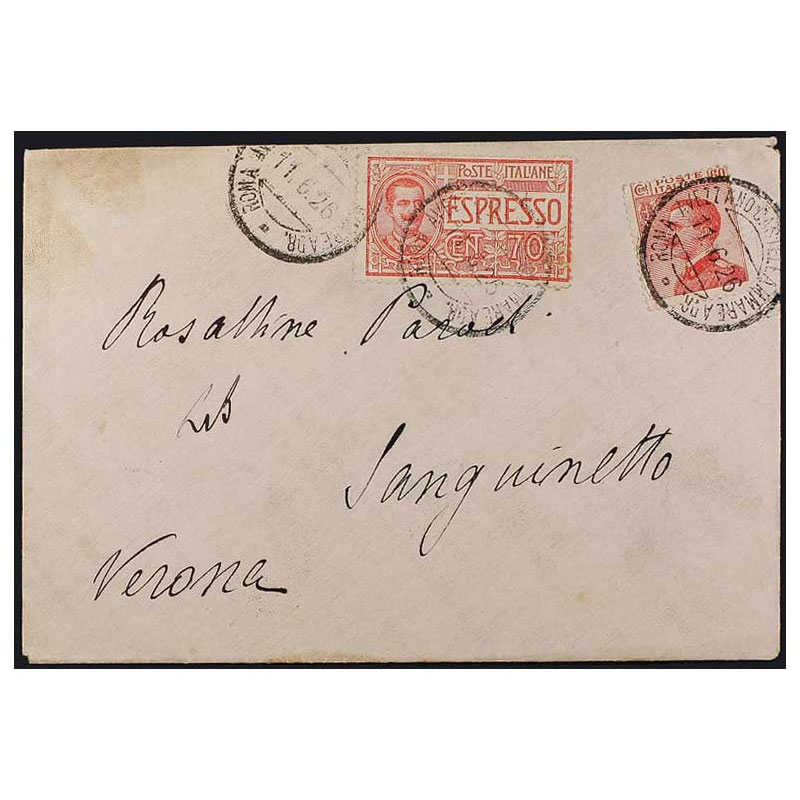 ROMA 11.6.26 MARE ADR.
POSTE ITALIANE
ESPRESSO
CEN 70
CENT POSTE 60
ITALIA
ROMA 11.6.26 CASTELLAMMARE ADR.
Rosalline Parodi
Sanguinetto
Verona